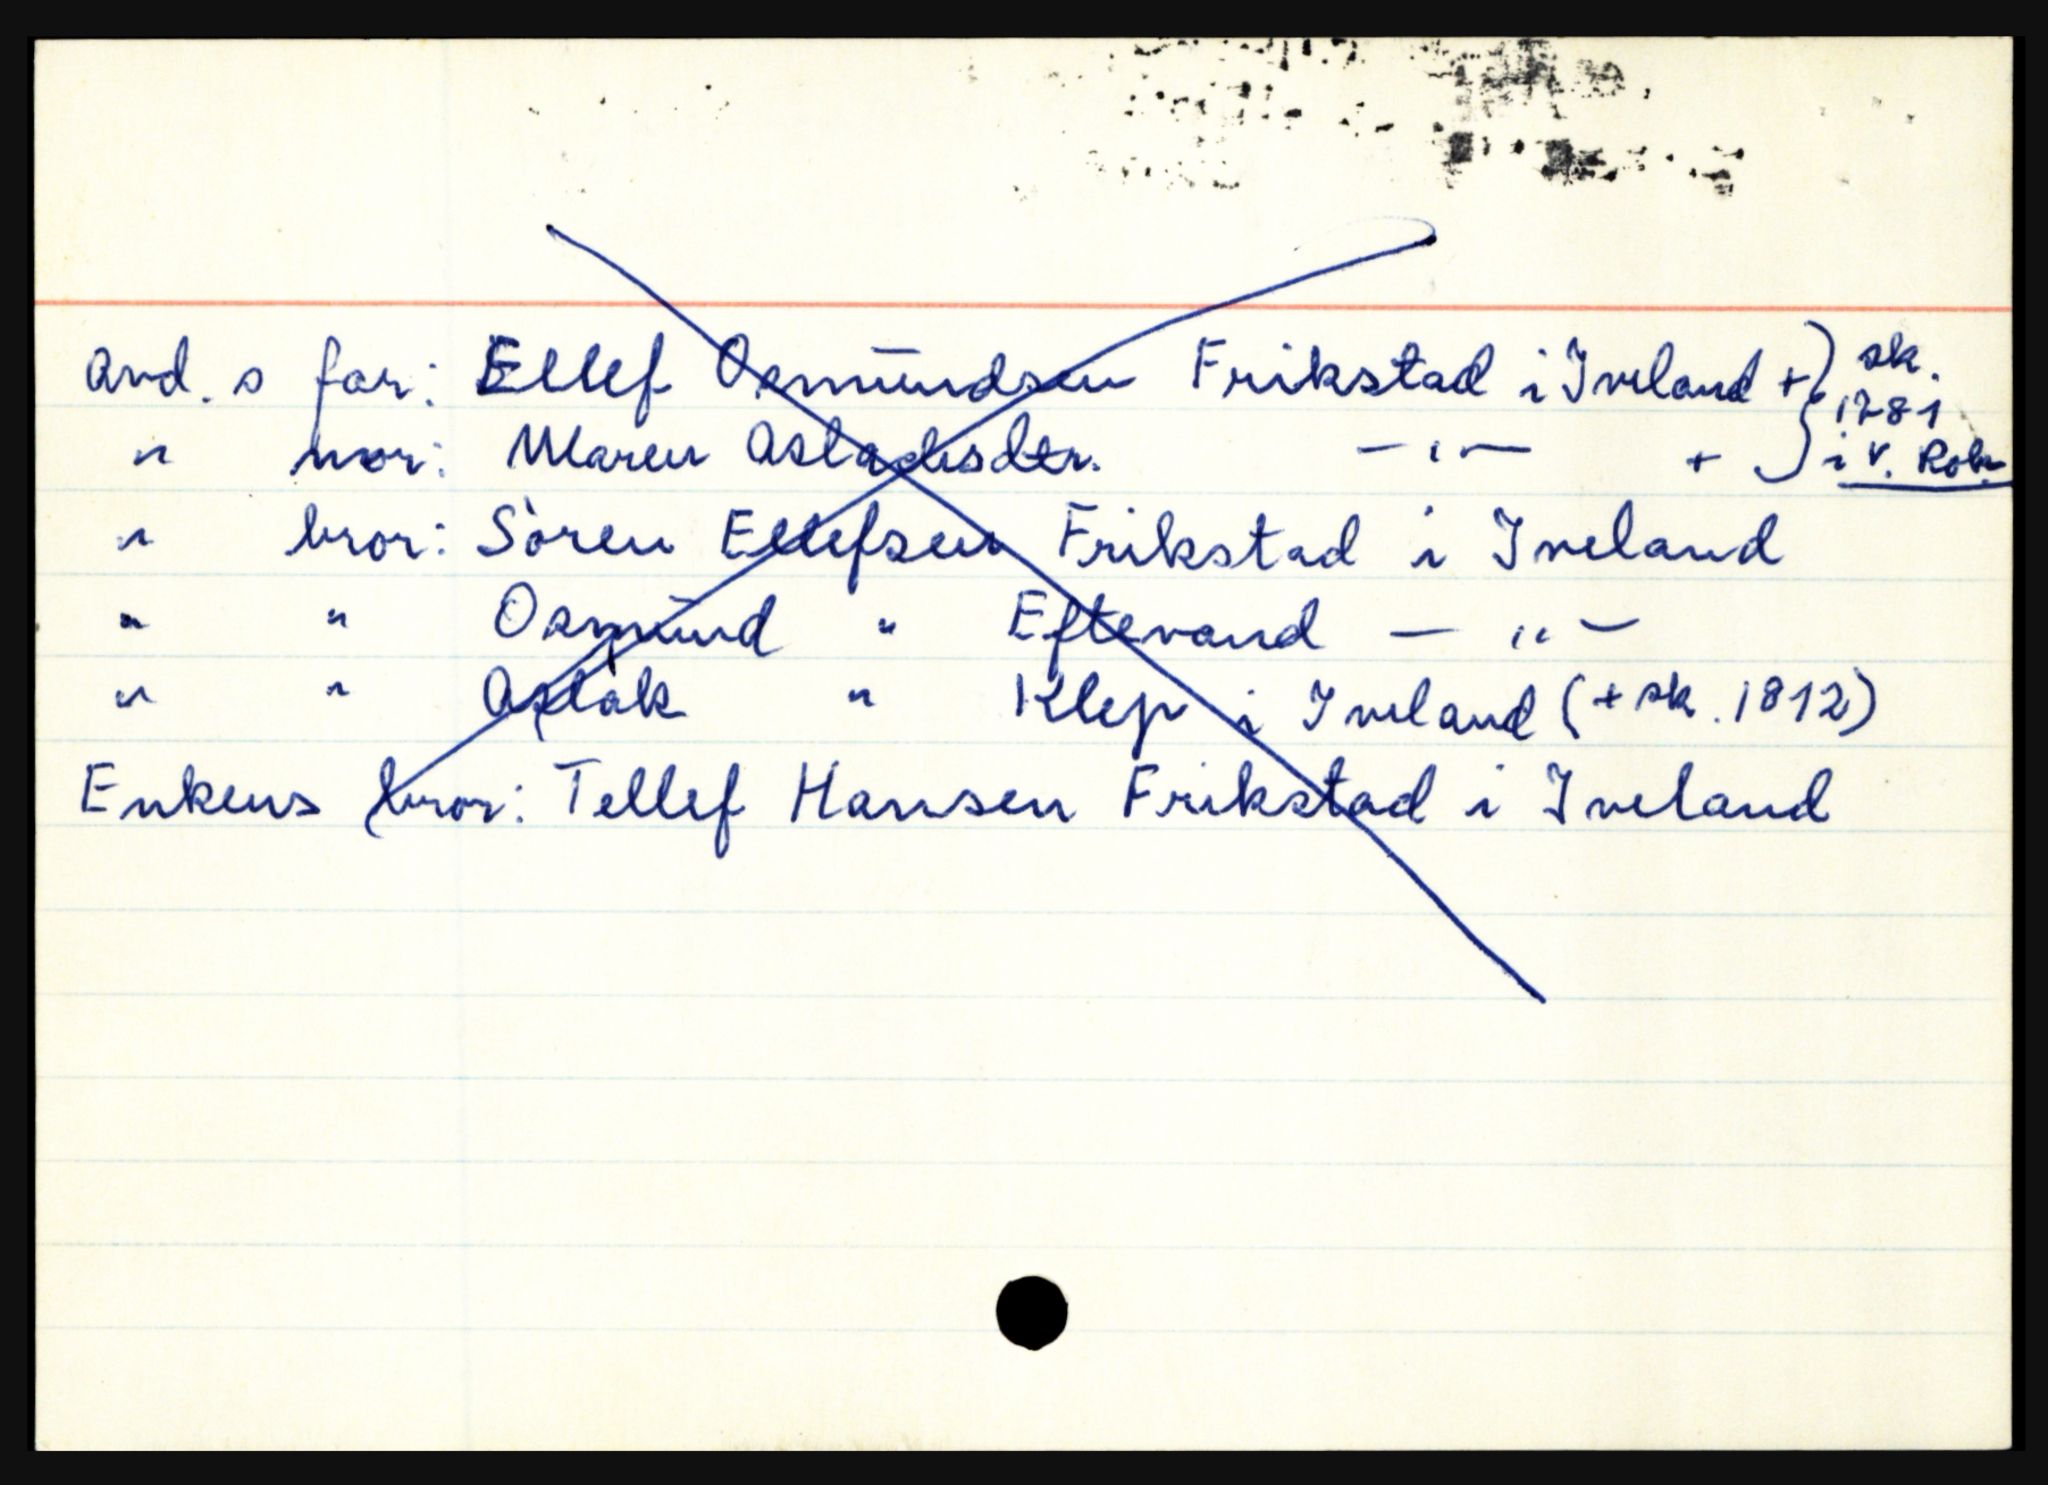 Avd. s far: Ellef Osmundsen Frikstad i Iveland + } sk. 1781
" mor: Maren Aslachsdtr. — " — + } i V. Rob.
" bror: Sören Ellefsen Frikstad i Iveland
" " Osmund " Eftevand — " —
" " Aslak " Klep i Iveland (+ sk. 1812)
Enkens bror: Tellef Hansen Frikstad i Iveland